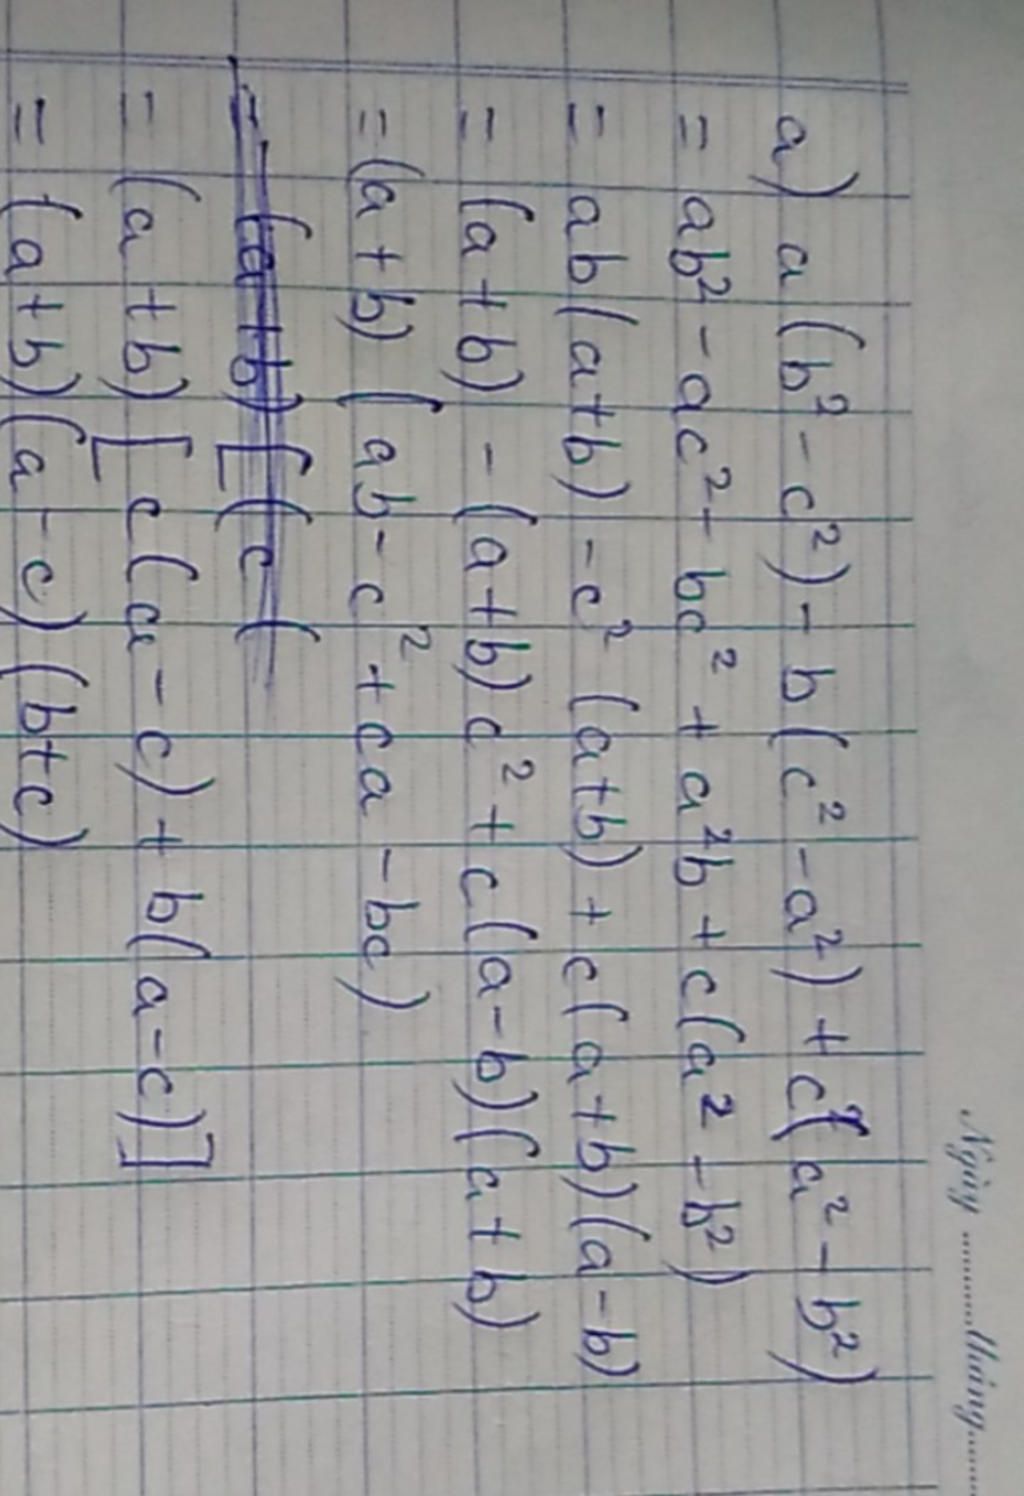 Ngày ........tháng......
a) a(b² - c²) - b(c² - a²) + c(a² - b²)
= ab² - ac² - bc² + a²b + c(a² - b²)
= ab(a+b) - c²(a+b) + c(a+b)(a-b)
= (a+b) - (a+b)c² + c(a-b)(a+b)
= (a+b)(ab - c² + ca - bc)
= (a+b)[(c(
= (a+b)[c(a-c) + b(a-c)]
= (a+b)(a-c)(b+c)